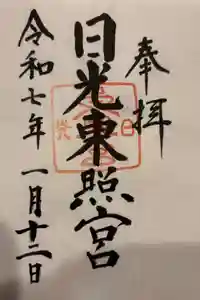 奉拝
日光東照宮
令和七年 一月十二日